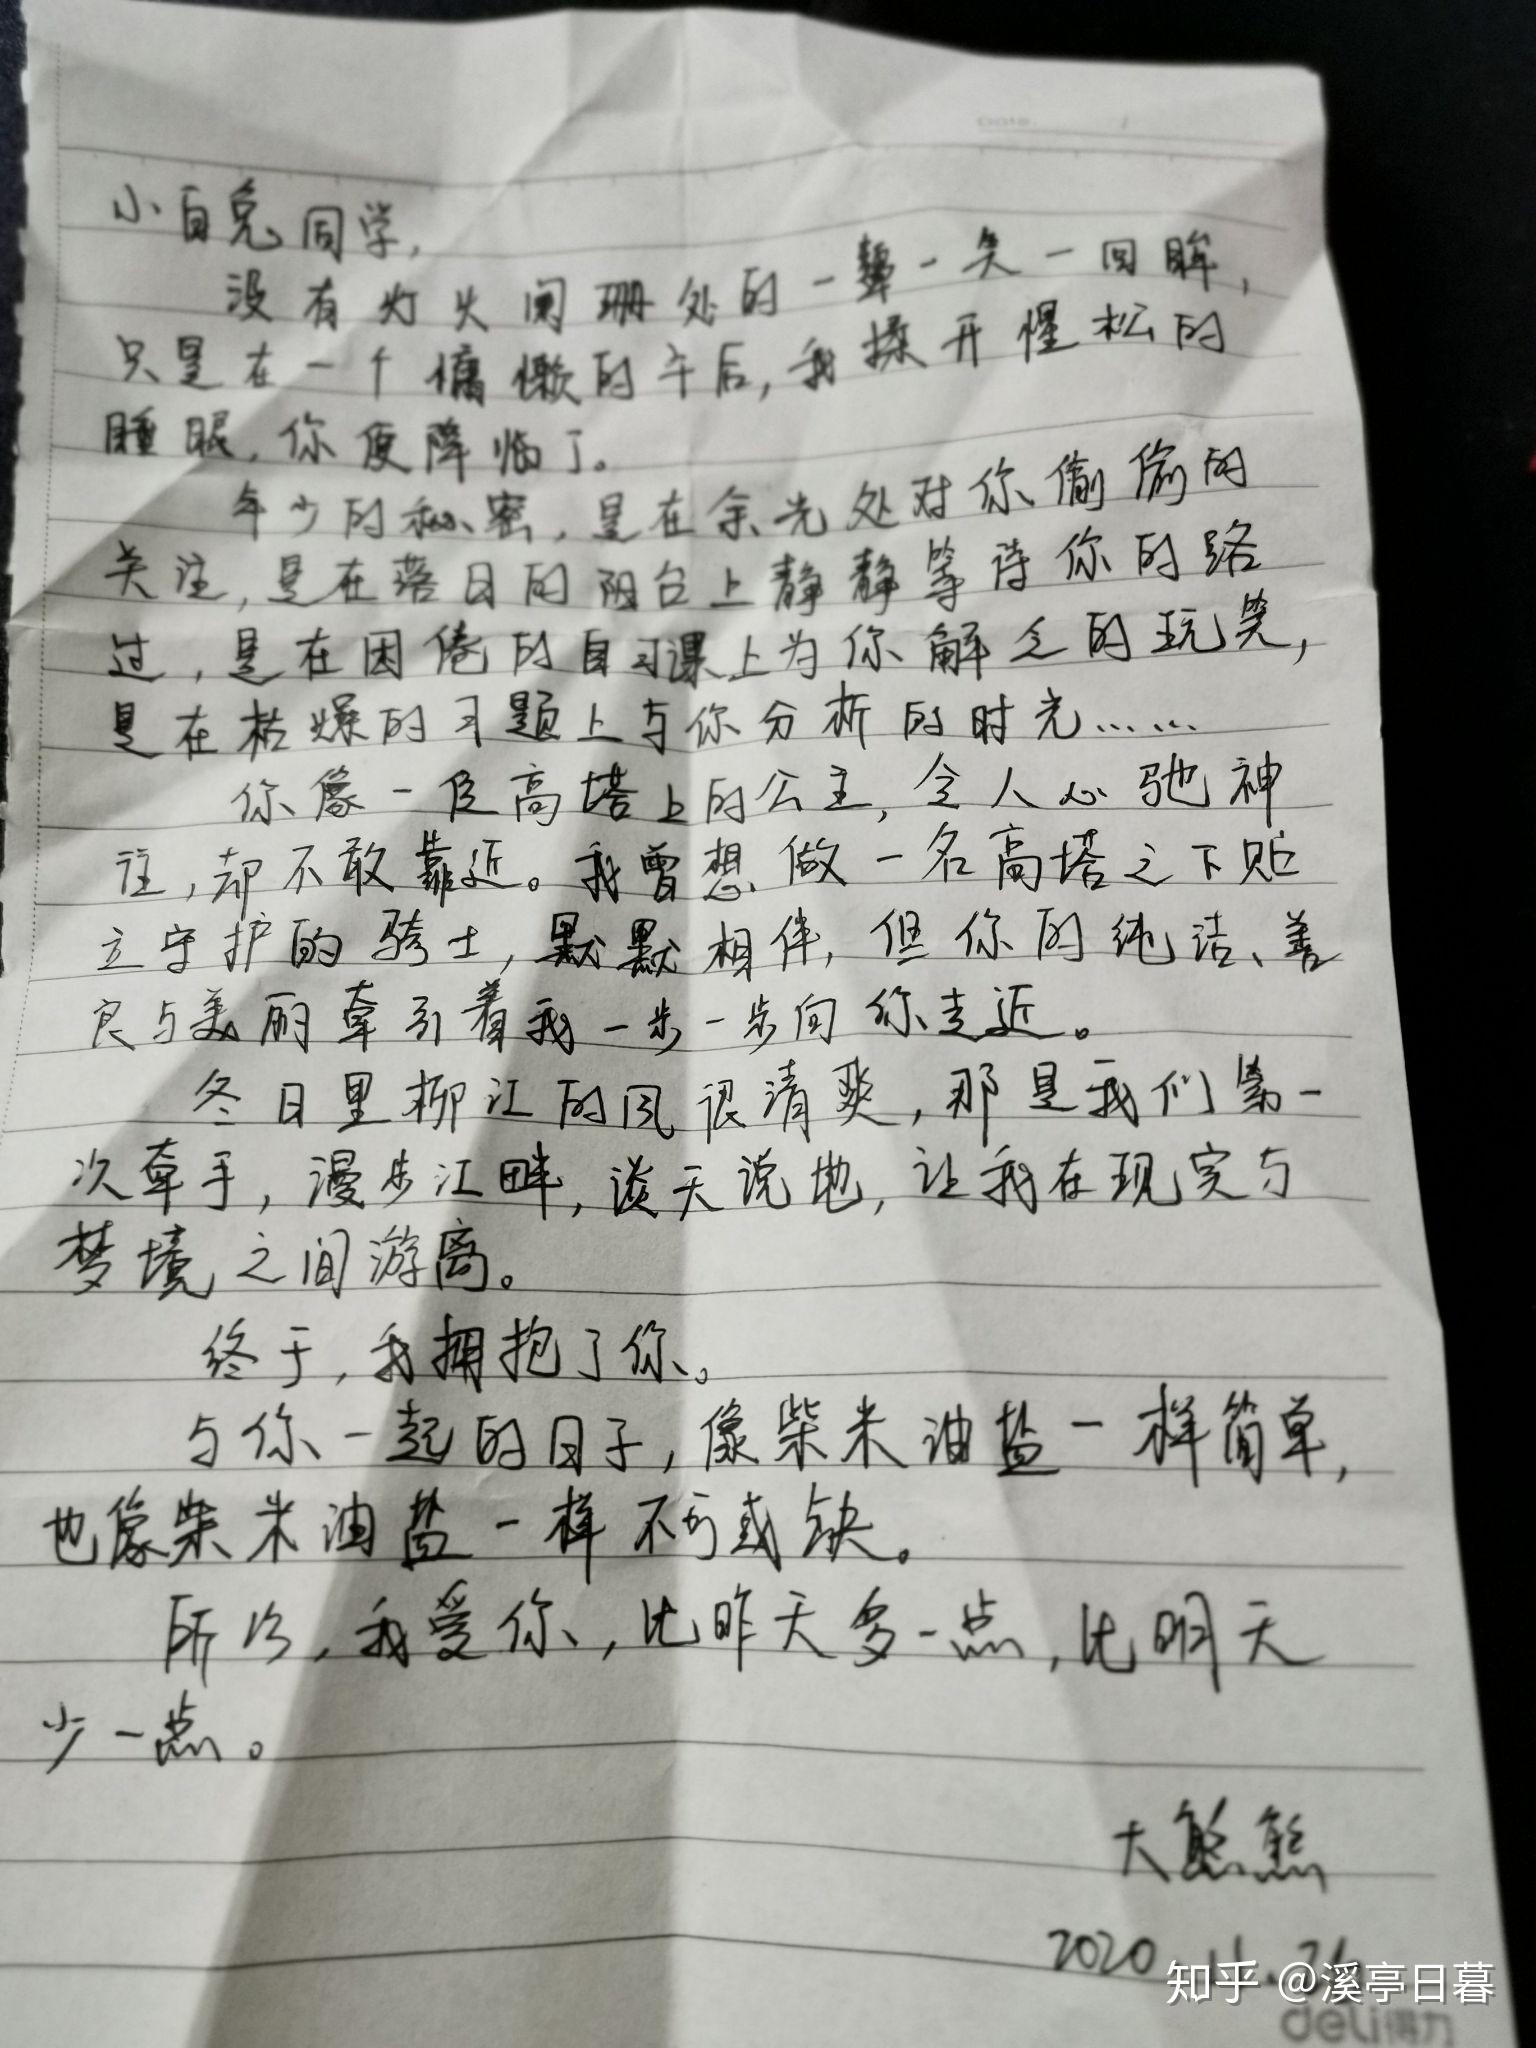 小白兔同学，
没有灯火阑珊处的一颦一笑一回眸，
只是在一个慵懒的午后，我揉开惺松的
睡眼，你便降临了。
年少的秘密，是在余光处对你偷偷的
关注，是在落日的阳台上静静等待你的路
过，是在困倦的自习课上为你解乏的玩笑，
是在枯燥的习题上与你分析的时光……
你像一位高塔上的公主，令人心驰神
往，却不敢靠近。我曾想做一名高塔之下伫
立守护的骑士，默默相伴，但你的纯洁、善
良与美丽牵引着我一步一步向你走近。
冬日里柳江的风很清爽，那是我们第一
次牵手，漫步江畔，谈天说地，让我在现实与
梦境之间游离。
终于，我拥抱了你。
与你一起的日子，像柴米油盐一样简单，
也像柴米油盐一样不可或缺。
所以，我爱你，比昨天多一点，比明天
少一点。
大熊熊
2020.11.
知乎 @溪亭日暮
deli得力